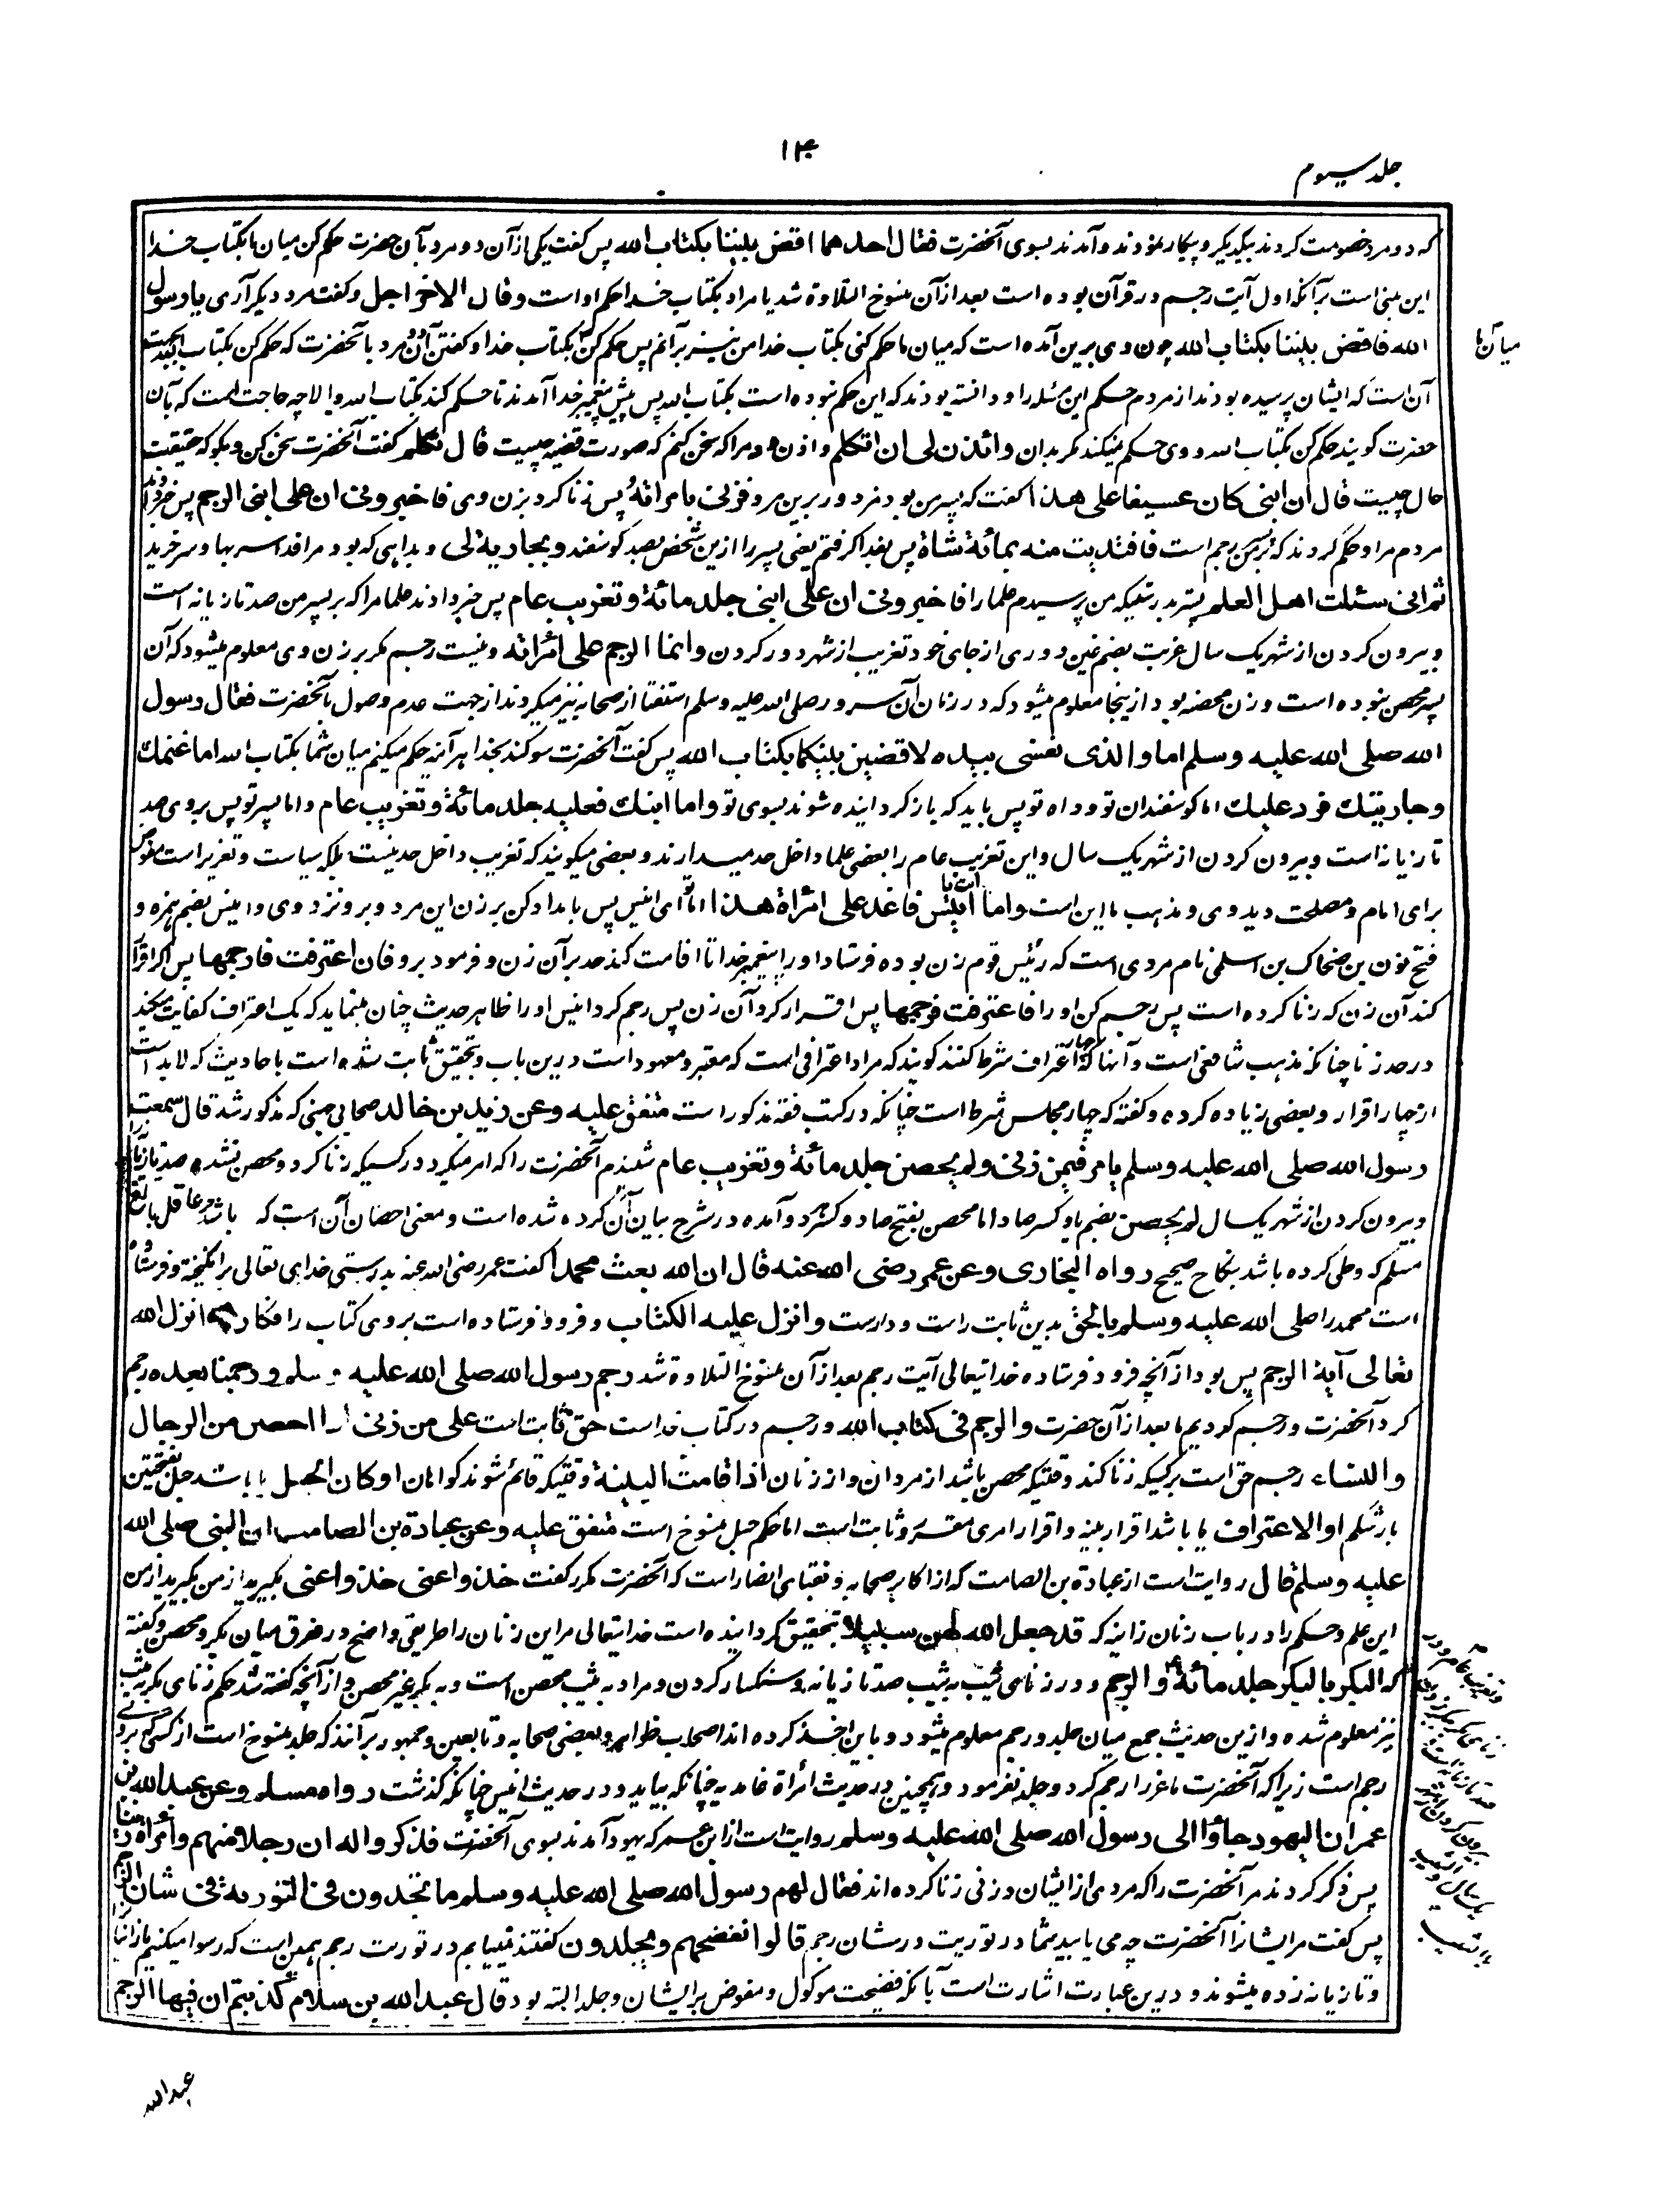 ۱۴
جلد سیوم
که دو مرد خصومت کردند بیکدیگر و پیکار نمودند و آمدند بسوی آنحضرت فقال احدهما اقض بیننا بکتاب الله پس گفت یکی ازآن دو مرد بآن حضرت حکم کن میان ما بکتاب خدا
این مبنی است برآنکه اول آیت رجم در قرآن بوده است بعد ازآن منسوخ التلاوة شد یا مراد بکتاب خدا حکم اواست وقال الاخر اجل و گفت مرد دیگر آری یا رسول
الله فاقض بیننا بکتاب الله چون وی برین آمده است که میان ما حکم کنی بکتاب خدا من نیز برآنم پس حکم کن بکتاب خدا و گفتن آن دو مرد بآنحضرت که حکم کن بکتاب
میان ما
آن است که ایشان پرسیده بودند از مردم حکم این مسئله را و دانسته بودند که این حکم نبوده است بکتاب الله پس پیش پیغمبر خدا آمدند تا حکم کند بکتاب الله و الا چه حاجت است که بآن
حضرت گویند حکم کن بکتاب الله و وی حکم نمیکند مگر بدان وائذن لی ان اتکلم و اذن ده مرا که سخن کنم که صورت قضیه چیست قال تکلم گفت آنحضرت سخن کن و بگو که حقیقت
حال چیست قال ان ابنی کان عسیفا علی هذا گفت که پسر من بود مزدور برین مرد فزنی بامرأته پس زنا کرد بزن وی فاخبرونی ان علی ابنی الرجم پس خبر دادند
مردم مرا و حکم کردند که بر پسر من رجم است فافتدیت منه بمائة شاة پس بفدا گرفتم یعنی پسر را ازین شخص بصد گوسفند وبجاریة لی و بداهی که بود مرا فدا سربها و سر خرید
ثم انی سئلت اهل العلم پستر بدرستیکه من پرسیدم علما را فاخبرونی ان علی ابنی جلد مائة وتغریب عام پس خبر دادند علما مرا که بر پسر من صد تازیانه است
و بیرون کردن از شهر یک سال غربت بضم غین دوری از جای خود تغریب از شهر دور کردن وانما الرجم علی امرأته و نیست رجم مگر بر زن وی معلوم میشود که آن
پسر محصن نبوده است و زن محصنه بود ازینجا معلوم میشود که در زمان آن سرور صلی الله علیه وسلم استفتا از صحابه نیز میکردند از جهت عدم وصول بآنحضرت فقال رسول
الله صلی الله علیه وسلم اما والذی نفسی بیده لاقضین بینکما بکتاب الله پس گفت آنحضرت سوگند بخدا هرآئنه حکم میکنم میان شما بکتاب الله اما غنمک
وجاریتک فرد علیک اما گوسفندان تو و داه تو پس باید که باز گردانیده شوند بسوی تو واما ابنک فعلیه جلد مائة وتغریب عام و اما پسر تو پس بر وی صد
تازیانه است و بیرون کردن از شهر یک سال و این تغریب عام را بعضی علما داخل حد میدارند و بعضی میگویند که تغریب داخل حد نیست بلکه سیاست و تعزیر است مفوض
برای امام و مصلحت دید وی و مذهب ما این است واما انت یا انیس فاغد علی امرأة هذا اما تو ای انیس پس بامداد کن بر زن این مرد و برو نزد وی و انیس بضم همزه و
فتح نون بن ضحاک بن اسلمی نام مردی است که رئیس قوم زن بوده فرستاد او را پیغمبر خدا تا اقامت کند حد برآن زن و فرمود برو فان اعترفت فارجمها پس اگر اقرار
کند آن زن که زنا کرده است پس رجم کن او را فاعترفت فرجمها پس اقرار کرد آن زن پس رجم کرد انیس او را ظاهر حدیث چنان مینماید که یک اعتراف کفایت میکند
در حد زنا چنانکه مذهب شافعی است و آنها که چهار اعتراف شرط کنند گویند که مراد اعترافی است که معتبر و معهود است درین باب و بتحقیق ثابت شده است باحادیث که لابد است
از چهار اقرار و بعضی زیاده کرده و گفته که چهار مجلس شرط است چنانکه در کتب فقه مذکور است متفق علیه وعن زید بن خالد صحابی جهنی که مذکور شد قال سمعت
رسول الله صلی الله علیه وسلم یامر فیمن زنی ولم یحصن جلد مائة وتغریب عام شنیدم آنحضرت را که امر میکرد در کسیکه زنا کرد و محصن نشده صد تازیانه را
و بیرون کردن از شهر یکسال لم یحصن بضم یا و کسر صاد اما محصن بفتح صاد و کسر هر دو آمده در شرح بیان آن کرده شده است و معنی احصان آن است که باشد حر عاقل بالغ
مسلم که وطی کرده باشد بنکاح صحیح رواه البخاری وعن عمر رضی الله عنه قال ان الله بعث محمدا گفت عمر رضی الله عنه بدرستی خدای تعالی برانگیخته و فرستاده
است محمد را صلی الله علیه وسلم بالحق بدین ثابت راست و درست وانزل علیه الکتاب و فرود فرستاده است بروی کتاب را فکان مما انزل الله
تعالی آیة الرجم پس بود از آنچه فرود فرستاده خدایتعالی آیت رجم بعد ازآن منسوخ التلاوة شد رجم رسول الله صلی الله علیه وسلم ورجمنا بعده رجم
کرد آنحضرت و رجم کردیم ما بعد ازآن حضرت والرجم فی کتاب الله و رجم در کتاب خداست حق ثابت است علی من زنی اذا احصن من الرجال
والنساء رجم حق است بر کسیکه زنا کند وقتیکه محصن باشد از مردان و از زنان اذا قامت البینة وقتیکه قائم شوند گواهان او کان الحبل یا باشد حبل بفتحتین
بار شکم او الاعتراف یا باشد اقرار بینه و اقرار امری مقرر و ثابت است اما حکم حبل منسوخ است متفق علیه وعن عبادة بن الصامت ان النبی صلی الله
علیه وسلم قال روایت است از عبادة بن الصامت که از اکابر صحابه و نقبای انصار است که آنحضرت مکرر گفت خذوا عنی خذوا عنی بگیرید از من بگیرید از من
این علم و حکم را در باب زنان زانیه که قد جعل الله لهن سبیلا بتحقیق گردانیده است خدایتعالی مر این زنان را طریقی واضح در فرق میان بکر و محصن و گفته
که البکر بالبکر جلد مائة والرجم و در زنای ثیب به ثیب صد تازیانه و سنگسار کردن و مراد به ثیب محصن است و به بکر غیر محصن و از آنچه گفته شد حکم زنای بکر به ثیب
نیز معلوم شده و ازین حدیث جمع میان جلد و رجم معلوم میشود و باین اخذ کرده اند اصحاب ظواهر و بعضی صحابه و تابعین و جمهور برآنند که جلد منسوخ است از کسی که بروی
رجم است زیرا که آنحضرت ماعز را رجم کرد و جلد نفرمود و همچنین در حدیث امرأة غامدیه چنانکه بیاید و در حدیث انیس چنانکه گذشت رواه مسلم وعن عبد الله بن
عمر ان الیهود جاؤا الی رسول الله صلی الله علیه وسلم روایت است از ابن عمر که یهود آمدند بسوی آنحضرت فذکروا له ان رجلا منهم وامرأة زنیا
پس ذکر کردند مر آنحضرت را که مردی از ایشان و زنی زنا کرده اند فقال لهم رسول الله صلی الله علیه وسلم ما تجدون فی التوریة فی شان الرجم
پس گفت مر ایشانرا آنحضرت چه می یابید شما در توریت در شان رجم قالوا نفضحهم ویجلدون گفتند نمییابیم در توریت رجم همین است که رسوا میکنیم زانیانرا
و تازیانه زده میشوند و درین عبارت اشارت است بآنکه فضیحت موکول و مفوض برایشان و جلد البته بود قال عبد الله بن سلام کذبتم ان فیها الرجم
عبدالله